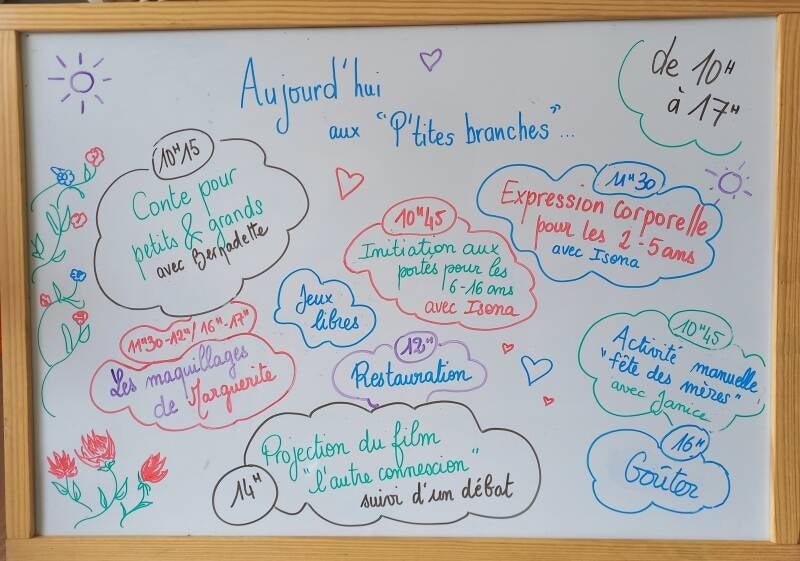 Aujourd'hui
aux "P'tites branches"...
de 10H
à 17H
10H15
Conte pour
petits & grands
avec Bernadette
10H45
Initiation aux
portés pour les
6-16 ans
avec Isona
11H30
Expression Corporelle
pour les 2-5 ans
avec Isona
Jeux
libres
11H30-12H/16H-17H
Les maquillages
de Marguerite
12H
Restauration
10H45
Activité manuelle
"fête des mères"
avec Janice
14H
Projection du film
"l'autre connexion"
suivi d'un débat
16H
Goûter